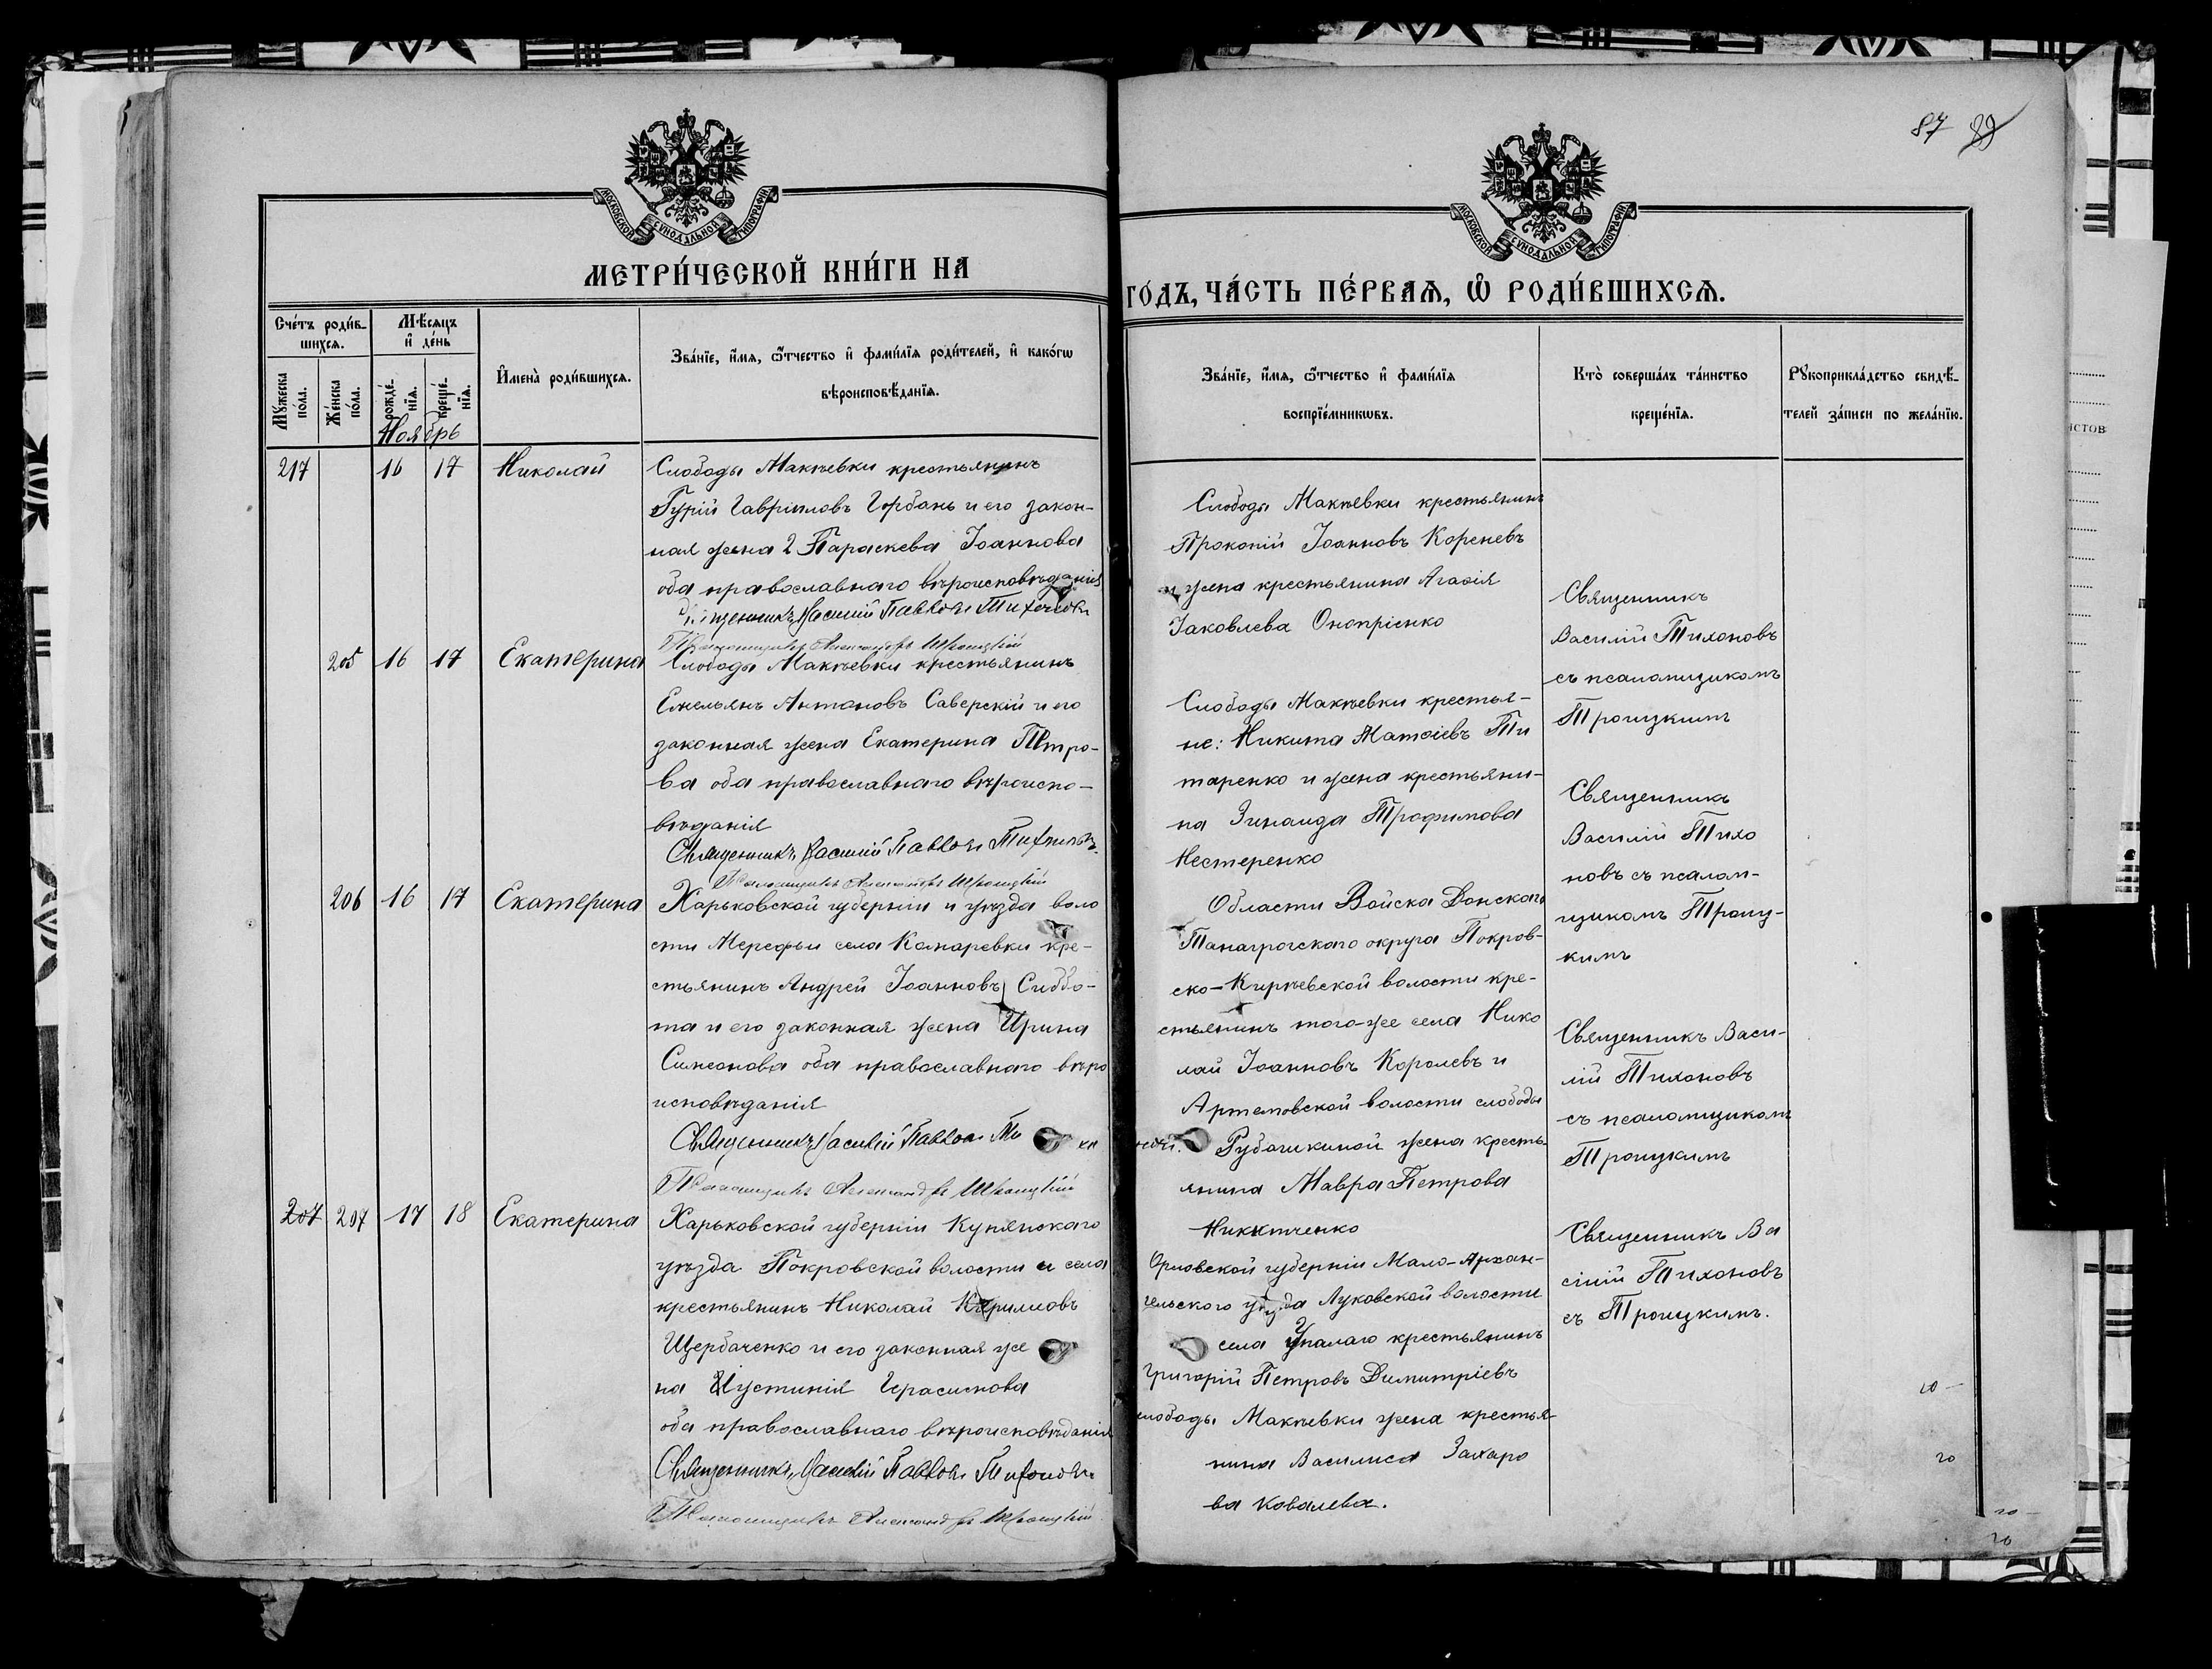 87 89
МОСКОВСКОЙ СѴНОДАЛЬНОЙ ТИПОГРАФІИ
МОСКОВСКОЙ СѴНОДАЛЬНОЙ ТИПОГРАФІИ
МЕТРИ́ЧЕСКОЙ КНИ́ГИ НА
ГО́ДЪ, ЧА́СТЬ ПЕ́РВАѦ, Ѡ҆ РОДИ́ВШИХСѦ.
Сче́тъ роди́в-
шихсѧ.
Мꙋ́жеска по́ла.
Же́нска по́ла.
Мѣ́сѧцъ
и҆ де́нь
рожде́-
нїѧ.
креще́-
нїѧ.
Ноябрь
И҆мена̀ роди́вшихсѧ.
Зва́нїе, и҆́мѧ, ѻ҆́тчество и҆ фами́лїѧ роди́телей, и҆ како́гѡ
вѣроисповѣ́данїѧ.
Зва́нїе, и҆́мѧ, ѻ҆́тчество и҆ фами́лїѧ
воспрїе́мникѡвъ.
Кто̀ соверша́лъ та́инство
креще́нїѧ.
Рꙋкоприкла́дство свидѣ́-
телей за́писи по жела́нїю.
217 16 17 Николай
Слободы Макѣевки крестьянинъ
Гурій Гавріиловъ Горбань и его закон-
ная жена 2 Параскева Іоаннова
оба православнаго вѣроисповѣданія
Священникъ Василій Павловъ Тихоновъ
Псаломщикъ Александръ Троицкій
Слободы Макѣевки крестьянинъ
Прокопій Іоанновъ Кореневъ
и жена крестьянина Агафія
Іаковлева Онопріенко
Священникъ
Василій Тихоновъ
съ псаломщикомъ
Троицкимъ
205 16 17 Екатерина
Слободы Макѣевки крестьянинъ
Емельянъ Антоновъ Саверскій и его
законная жена Екатерина Петро-
ва оба православнаго вѣроиспо-
вѣданія
Священникъ Василій Павловъ Тихоновъ
Псаломщикъ Александръ Троицкій
Слободы Макѣевки крестья-
не: Никита Матѳіевъ Ти
таренко и жена крестьяни-
на Зинаида Трофимова
Нестеренко
Священникъ
Василій Тихо
новъ съ псалом-
щикомъ Троиц-
кимъ
206 16 17 Екатерина
Харьковской губерніи и уѣзда воло
сти Мерефы села Комаревки кре-
стьянинъ Андрей Іоанновъ Сиббо-
та и его законная жена Ирина
Симеонова оба православнаго вѣро
исповѣданія
Священникъ Василій Павловъ
Псаломщикъ Александръ Троицкій
Области Войска Донскаго
Таганрогскаго округа Покров-
ско-Кирѣевской волости кре-
стьянинъ того-же села Нико
лай Іоанновъ Королевъ и
Артемовской волости слободы
Рубашкиной жена кресть-
янина Мавра Петрова
Никитченко
Священникъ Васи-
лій Тихоновъ
съ псаломщикомъ
Троицкимъ
207 207 17 18 Екатерина
Харьковской губерніи Купянскаго
уѣзда Покровской волости и села
крестьянинъ Николай Кирилловъ
Щербаченко и его законная же
на Иустинія Герасимова
оба православнаго вѣроисповѣданія
Священникъ Василій Павловъ Тихоновъ
Псаломщикъ Александръ Троицкій
Орловской губерніи Мало-Архан-
гельского уѣзда Луковской волости
села Упалаго крестьянинъ
Григорій Петровъ Димитріевъ
слободы Макѣевки жена крестья-
нина Василиса Захаро
ва Ковалева.
Священникъ Ва
сілій Тихоновъ
съ Троицкимъ.